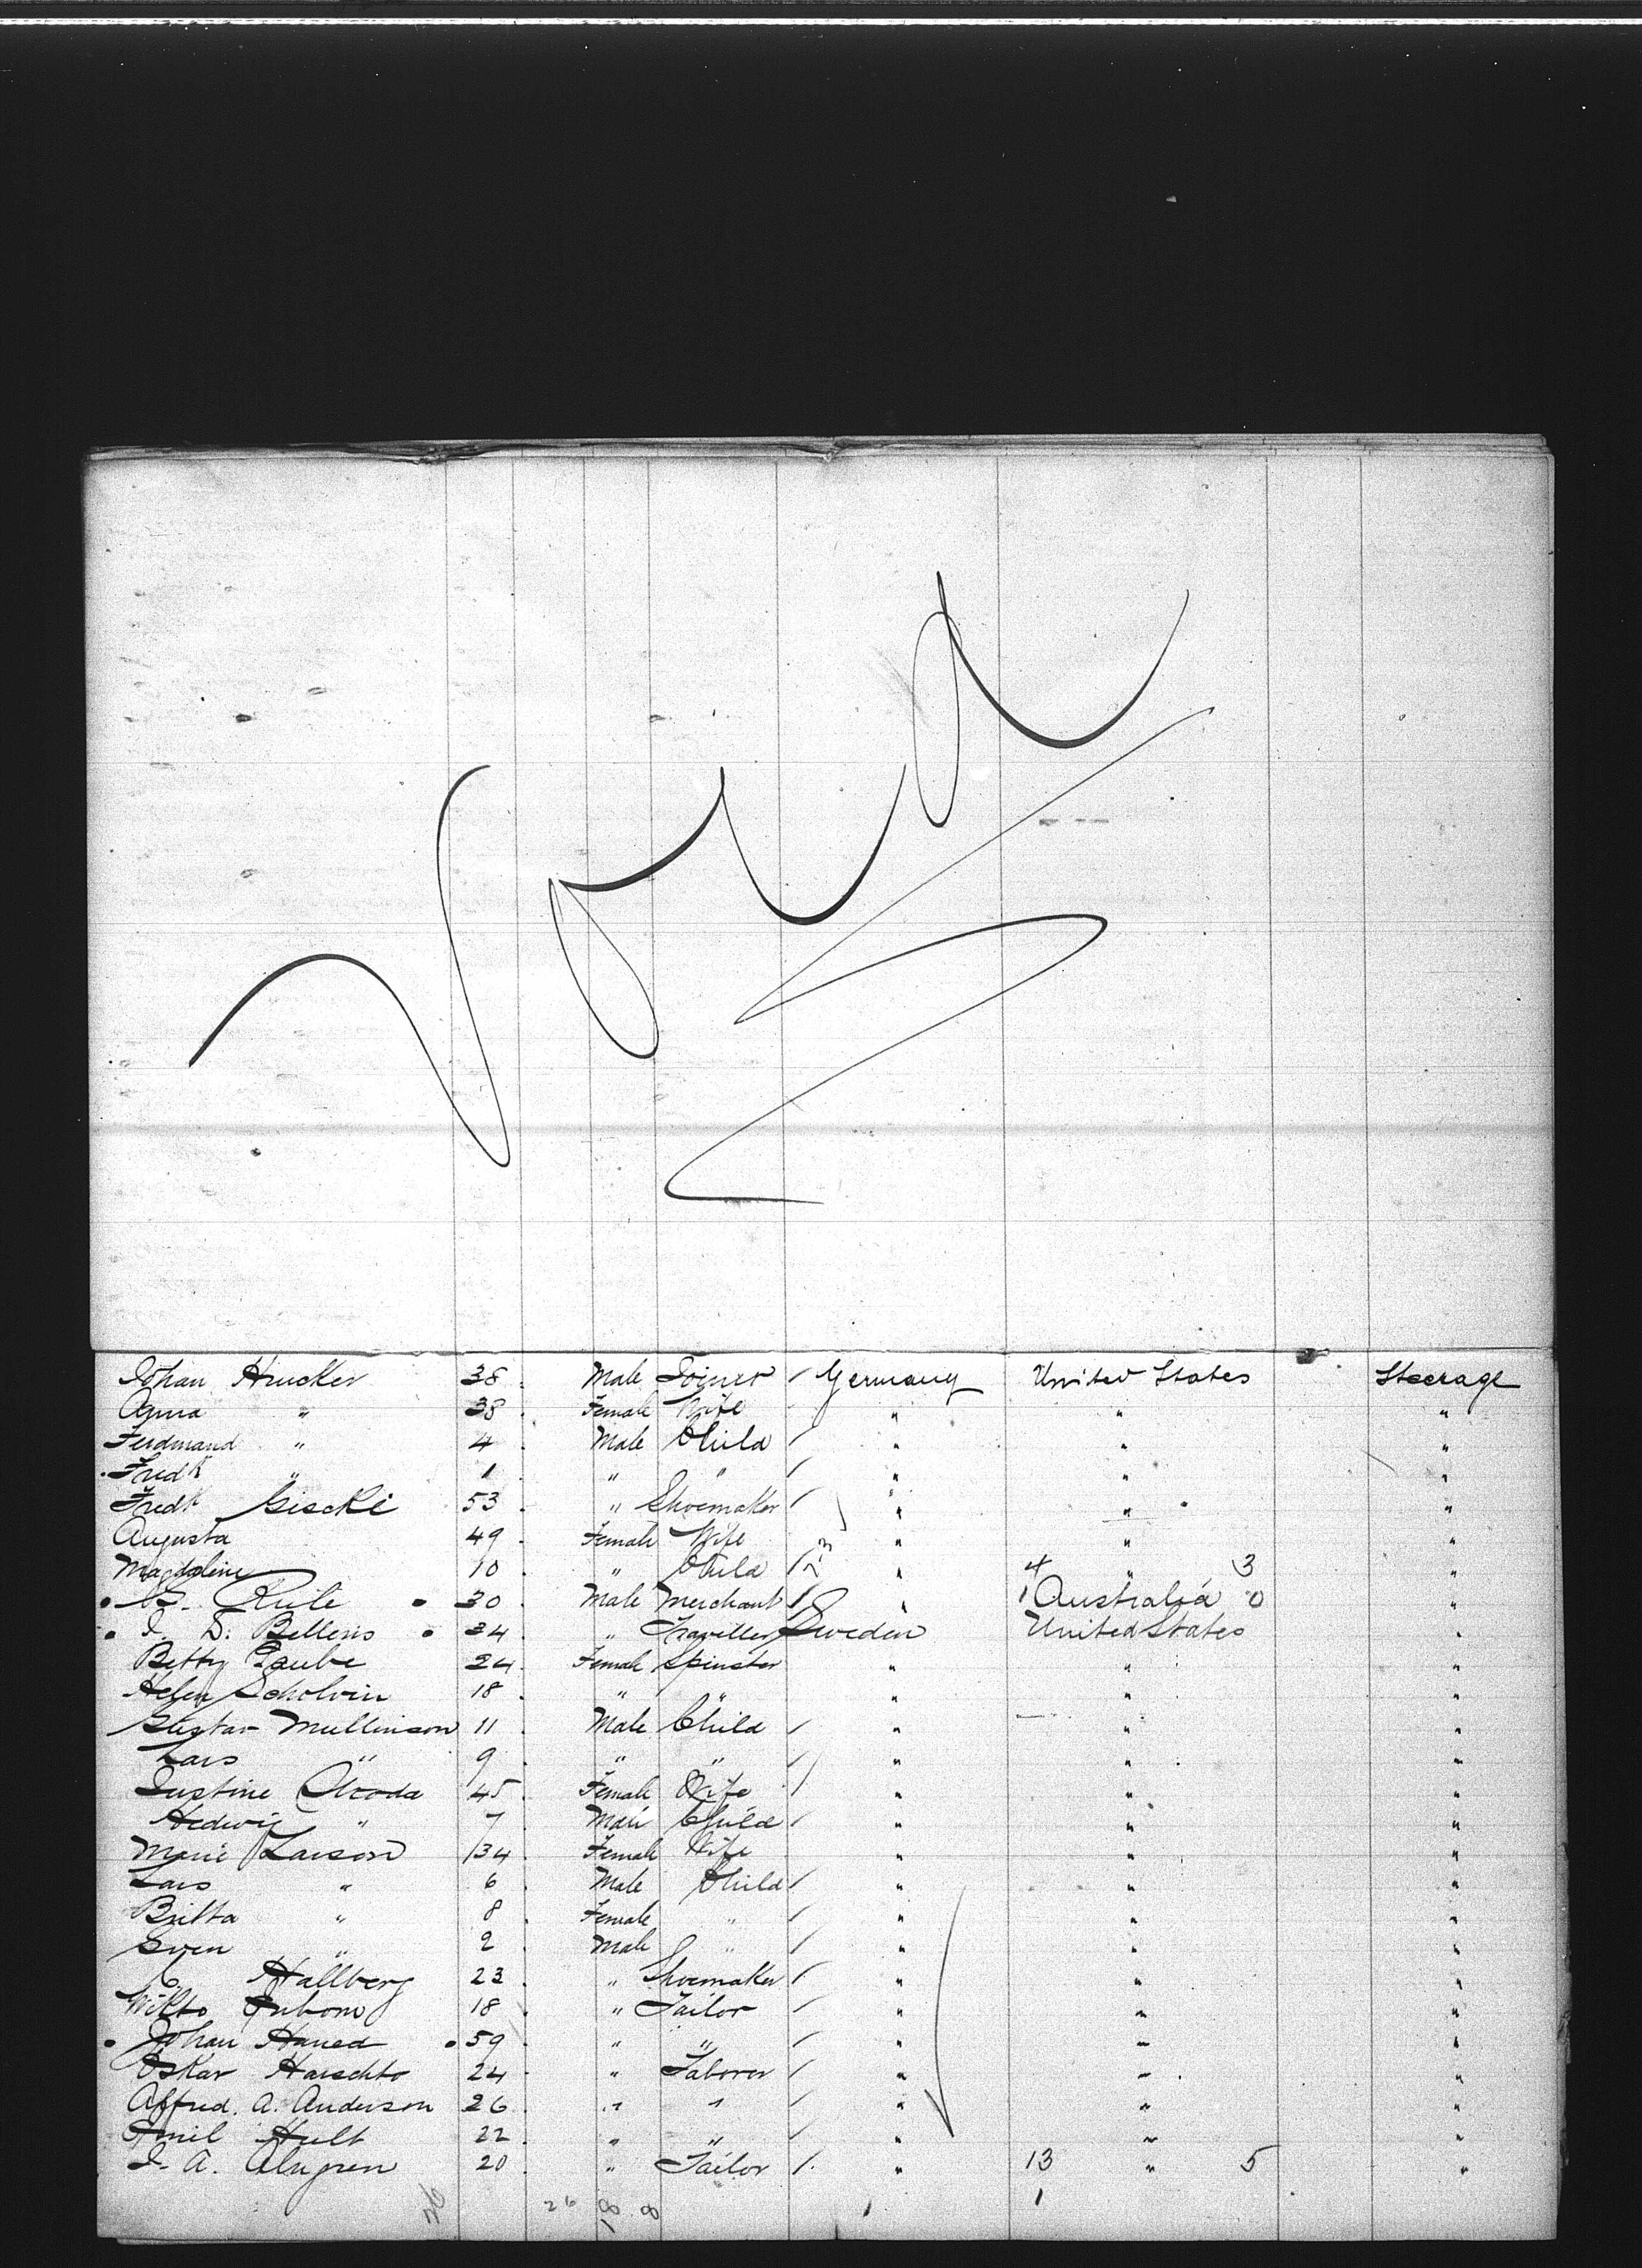 Void
Johan Hucker 38 Male Joiner / Germany United States Steerage
Anna " 38 Female Wife " " "
Ferdinand " 4 Male Child / " " "
Fredk " 1 " " / " " "
Fredk Giscke 53 " Shoemaker / " " "
Augusta 49 Female Wife " " "
Magdoline 10 " Child / " 4 " 3 "
30 Male Merchant / " 1 Australia 0 "
J. D. Bellens 34 " Traveller Sweden United States "
Betty 24 Female Spinster " " "
Helen Scholvin 18 " " " " "
Gustav Mullinson 11 Male Child / " " "
Lars " 9 " " / " " "
Justine 45 Female Wife / " " "
Hedwig " 7 Male Child / " " "
Marie Larson 34 Female Wife " " "
Lars " 6 Male Child / " " "
Britta " 8 Female " / " " "
Sven " 2 Male " / " " "
C. Hallberg 23 " Shoemaker / " " "
18 " Tailor / " " "
Johan 59 " " / " " "
Oskar 24 " Laborer / " " "
Alfred. A. Anderson 26 " " / " " "
Emil Hult 22 " " / " " "
J. A. Almgren 20 " Tailor / " 13 " 5 "
26 26 18 8 1 1